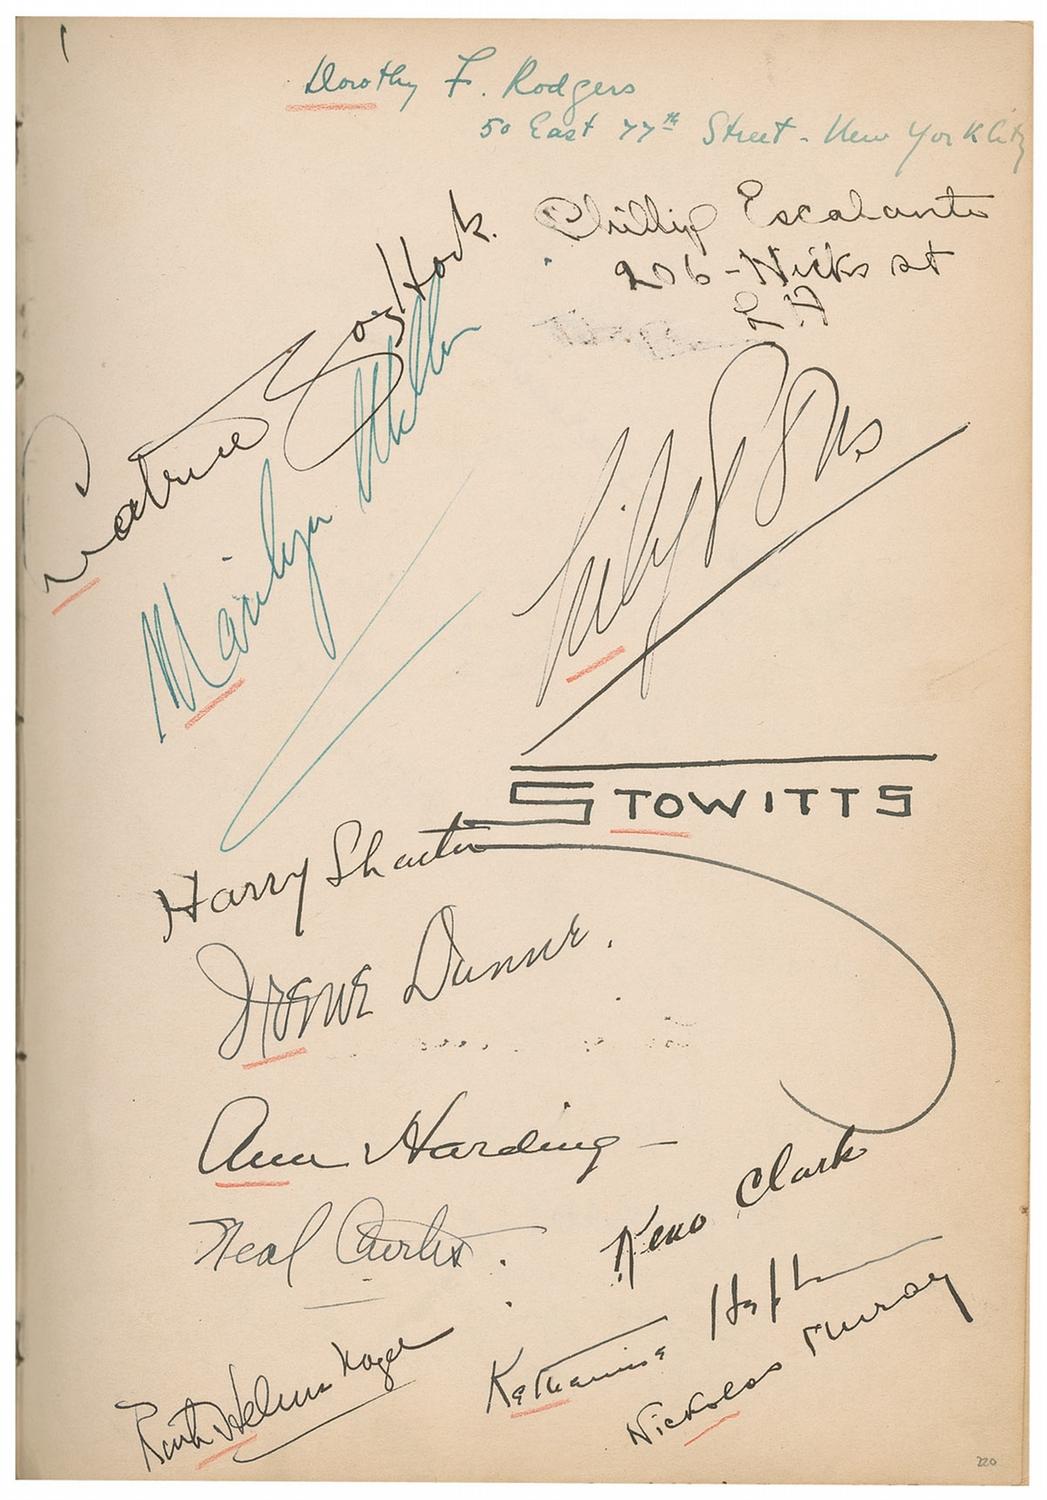 Dorothy F. Rodgers
50 East 77th Street - New York City
Phillip Escalante
206 - Hicks st
Beatrice Hock.
Marilyn Miller
Lily Pons
STOWITTS
Harry Shaiter
Irene Dunne.
Ann Harding -
Neal Curtis.
Keno Clark
Katharine Hepburn
Nickolas Muray
Ruth Helms Nagel
220